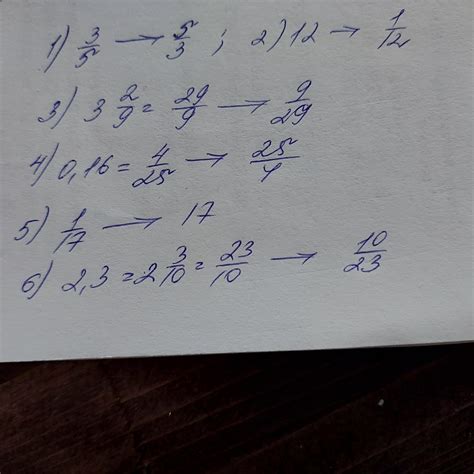 1) 3/5 → 5/3 ; 2) 12 → 1/12
3) 3 2/9 = 29/9 → 9/29
4) 0,16 = 4/25 → 25/4
5) 1/17 → 17
6) 2,3 = 2 3/10 = 23/10 → 10/23